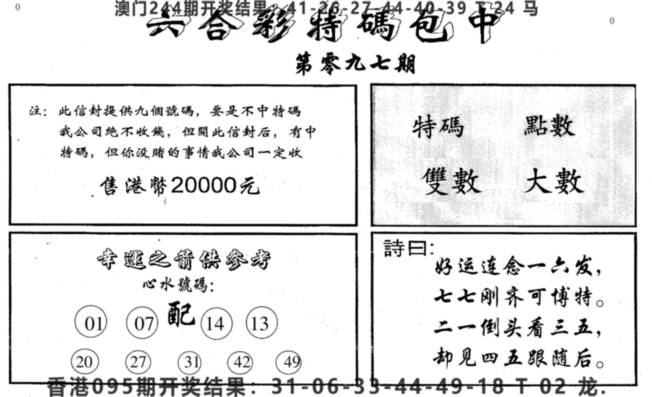 澳门244期开奖结果：41-26-27-44-40-39 T 24 马
0
0
六合彩特碼包中
第零九七期
注：此信封提供九個號碼，要是不中特碼
我公司绝不收錢，但開此信封后，有中
特碼，但你没賭的事情我公司一定收
售港幣20000元
特碼 點數
雙數 大數
幸運之箭供參考
心水號碼:
01 07 配 14 13
20 27 31 42 49
詩曰:
好运连念一六发，
七七刚齐可博特。
二一倒头看三五，
却见四五跟随后。
香港095期开奖结果：31-06-33-44-49-18 T 02 龙.